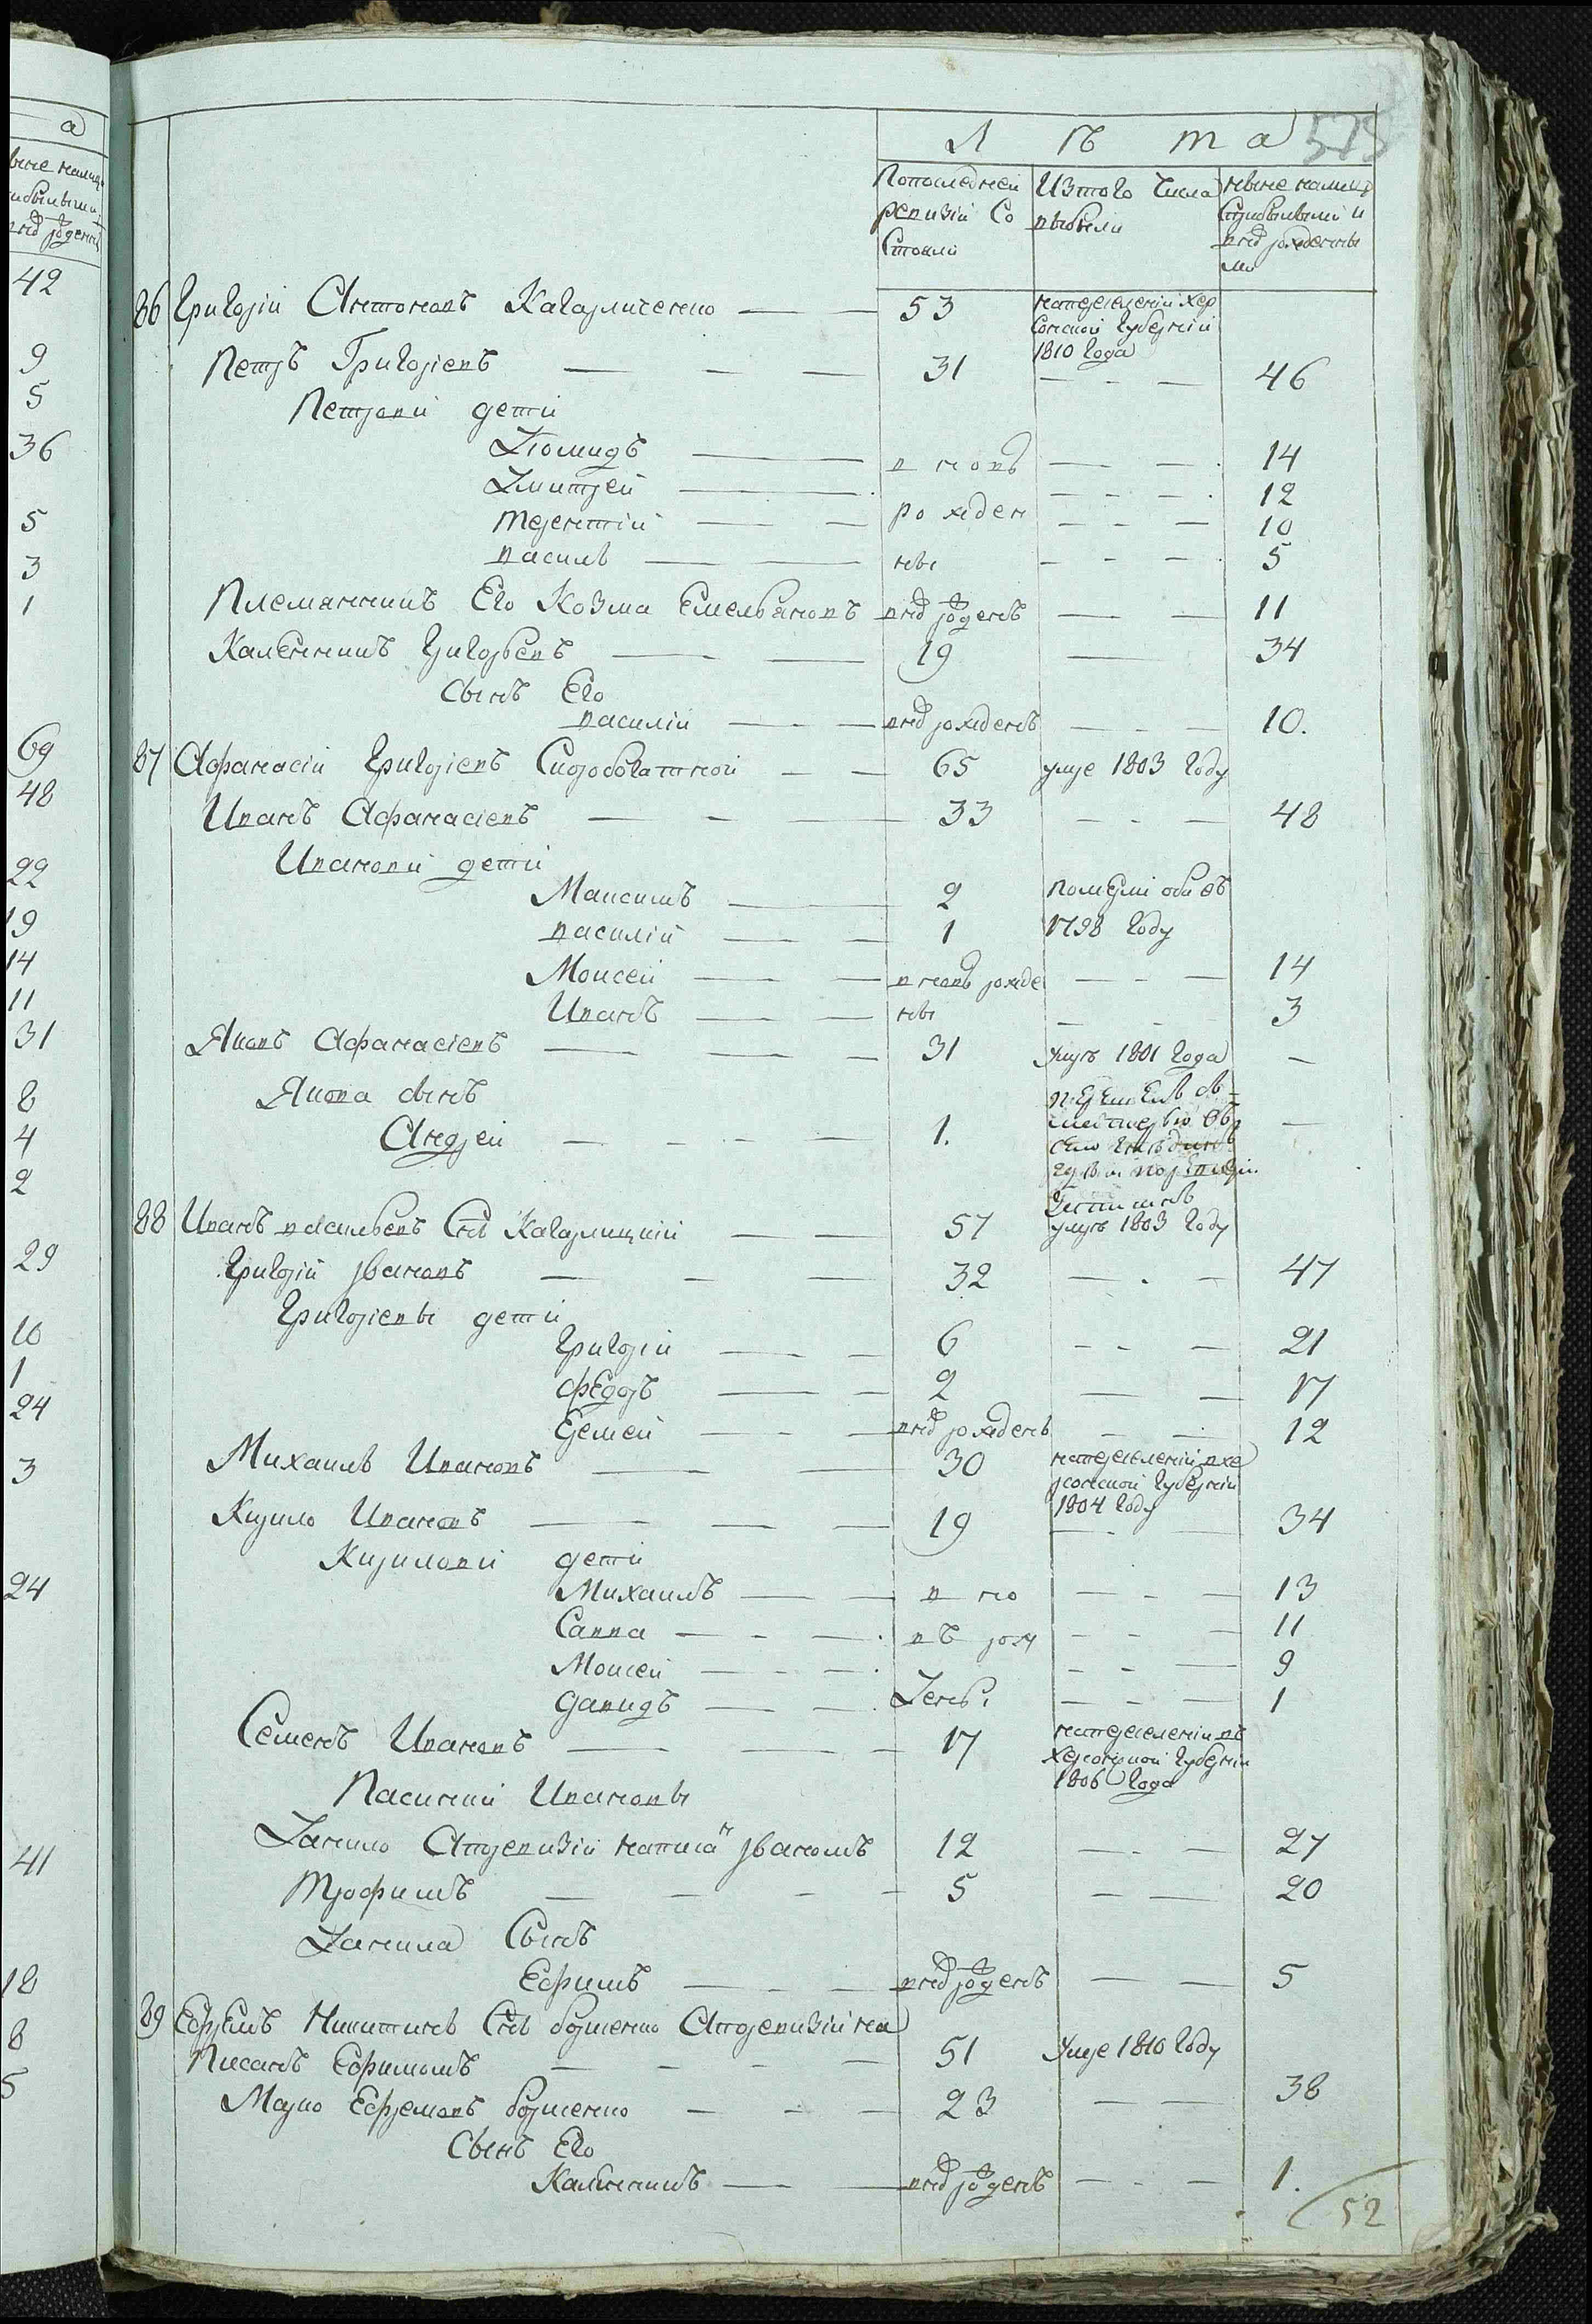 а
42
9
5
36
5
3
1
69
48
22
19
14
11
31
8
4
2
29
10
1
24
3
24
41
18
8
5
Л ѣ т а
По последней ревизіи Со стояли
Изтого числа выбыли
ныне налицо Сприбылыми и вновь рожденны ми
86 Григорій Антоновъ Кагарличенко — — 53 напереселеніи Хер сонской Губерніи 1810 года
Петръ Григоріевъ — — — 31 — - — 46
Петровы дети
Діомидъ — в новъ — — 14
Дмитрей — — - — 12
Терентій — — — рожден — - — 10
василь — — ны — - — 5
Племянникъ Его Козма Емельяновъ вновь рожденъ — — 11
Калѣнникъ Григорьевъ — — 19 — 34
Сынъ Его
василій — - — вновь рожденъ — - — 10.
87 Афанасій Григоріевъ Сидробогатной — — 65 умре 1803 году
Иванъ Афанасіевъ — - — 33 — - — 48
Ивановы дети
Максимъ — 2 Помѣрли оби въ
василій — — 1 1798 году
Моисей — — вновь рожде — - — 14
Иванъ — — ны — - 3
Яковъ Афанасіевъ — — — 31 умре 1801 года —
Якова сынъ
Андрей — - - — 1. —
88 Иванъ васильевъ Снъ Кагарлицкій — — 57 умре 1803 году
Григорій Івановъ — - — 32 — - — 47
Григоріевы дети
Григорій — — 6 — - — 21
Федоръ — — 2 — — 17
Еремей — - — вновь рожденъ — — 12
Михаилъ Ивановъ — — 30 напереселеніи в хе рсонской Губерніи 1804 году
Кирило Ивановъ — — — 19 — - — 34
Кириловы дети
Михаилъ — — в но — - — 13
Савва — - — въ рож — - — 11
Моисей — - — — - — 9
давидъ — — Денъ. — - — 1
Семенъ Ивановъ — — — 17 напереселеніи въ Херсонской Губерніи 1806 года
Пасинки Ивановы
Данило Апоревизіи написан Іваномъ 12 — - — 27
Трофимъ — — - — 5 — — 20
Данила Сынъ
Ефимъ — - — вновь рожденъ — — 5
89 Ефремъ Никитинъ Снъ борженко Апоревизіи на
Писанъ Ефимомъ — — - — 51 Умре 1810 году
Марко Ефремовъ борженко — - — 23 — — 38
Сынъ Его
Калѣнникъ — — вновь рожденъ — - — 1.
52